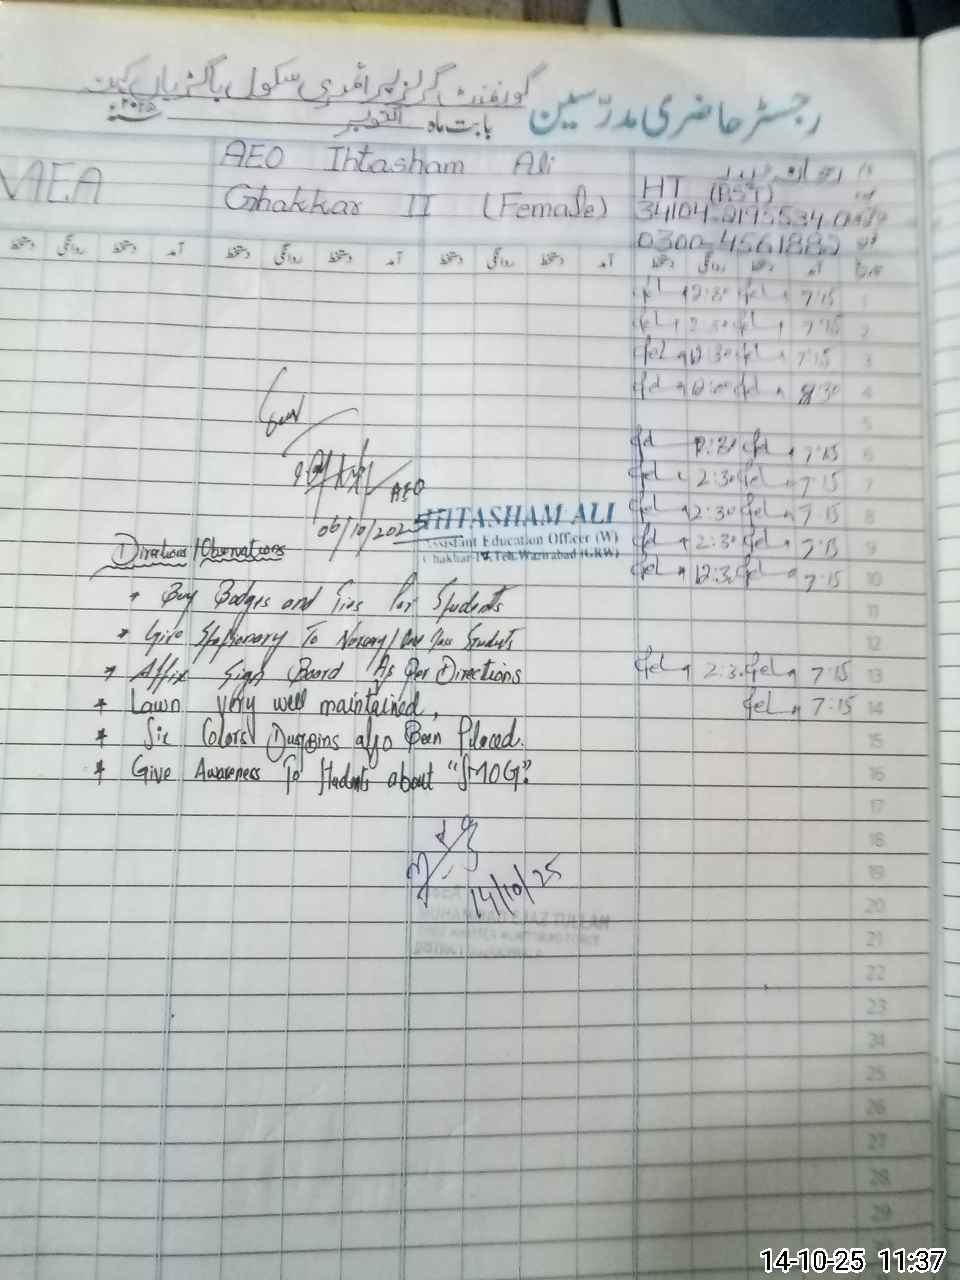 گورنمنٹ گرلز پرائمری سکول باگڑیاں کہنہ
رجسٹر حاضری مدرّسین
بابت ماہ اکتوبر ۲۰۲۵ سنہ
AEO Ihtasham Ali
Ghakkar II (Female)
HT (PST)
34104-0195534-0
0300-4561882
دستخط روانگی دستخط آمد دستخط روانگی دستخط آمد دستخط روانگی دستخط آمد دستخط روانگی دستخط آمد تاریخ
12:30 7:15 1
2:30 7:15 2
12:30 7:15 3
12:00 8:30 4
5
12:30 7:15 6
2:30 7:15 7
12:30 7:15 8
2:30 7:15 9
12:3 7:15 10
11
12
2:3 7:15 13
7:15 14
15
16
17
18
19
20
21
22
23
24
25
26
27
28
29
Seen
AEO
06/10/2025
IHTASHAM ALI
Assistant Education Officer (W)
Ghakhar-IV, Teh. Wazirabad (GRW)
Directions/Observations
* Buy Badges and Ties For Students
* Give Stationary To Nursery/ Students
* Affix Sign Board As Per Directions
* Lawn very well maintained,
* Six Colors Dustbins also Been Placed.
* Give Awareness To Students about "SMOG".
14/10/25
14-10-25 11:37